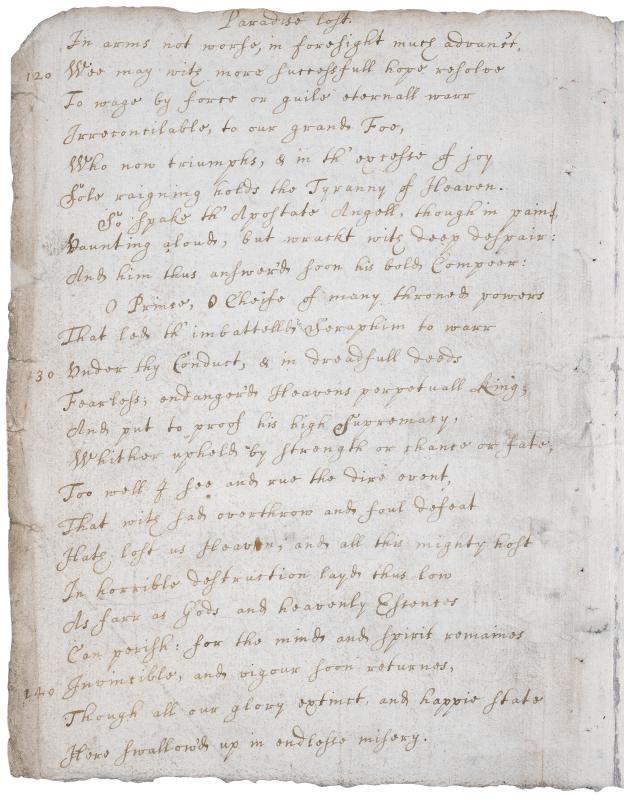 Paradise lost.
In arms not worse, in foresight much advanc't,
120 Wee may with more successfull hope resolve
To wage by force or guile eternall warr
Irreconcilable, to our grand Foe,
Who now triumphs, & in th' excesse of joy
Sole raigning holds the Tyranny of Heaven.
So spake th' Apostate Angell, though in paine,
Vaunting aloud, but wrackt with deep despair:
And him thus answerd soon his bold Compeer:
O Prince, O Cheife of many throned powers
That led th' imbattelld Seraphim to warr
130 Under thy Conduct, & in dreadfull deeds
Fearless; endanger'd Heavens perpetuall King;
And put to proof his high Supremacy,
Whither upheld by strength or chance or fate;
Too well I see and rue the dire event,
That with sad overthrow and foul defeat
Hath lost us Heaven, and all this mighty host
In horrible destruction layd thus low
As farr as Gods and heavenly Essences
Can perish: for the mind and spirit remaines
140 Invincible, and vigour soon returnes,
Though all our glory extinct, and happie state
Here swallow'd up in endlesse misery.